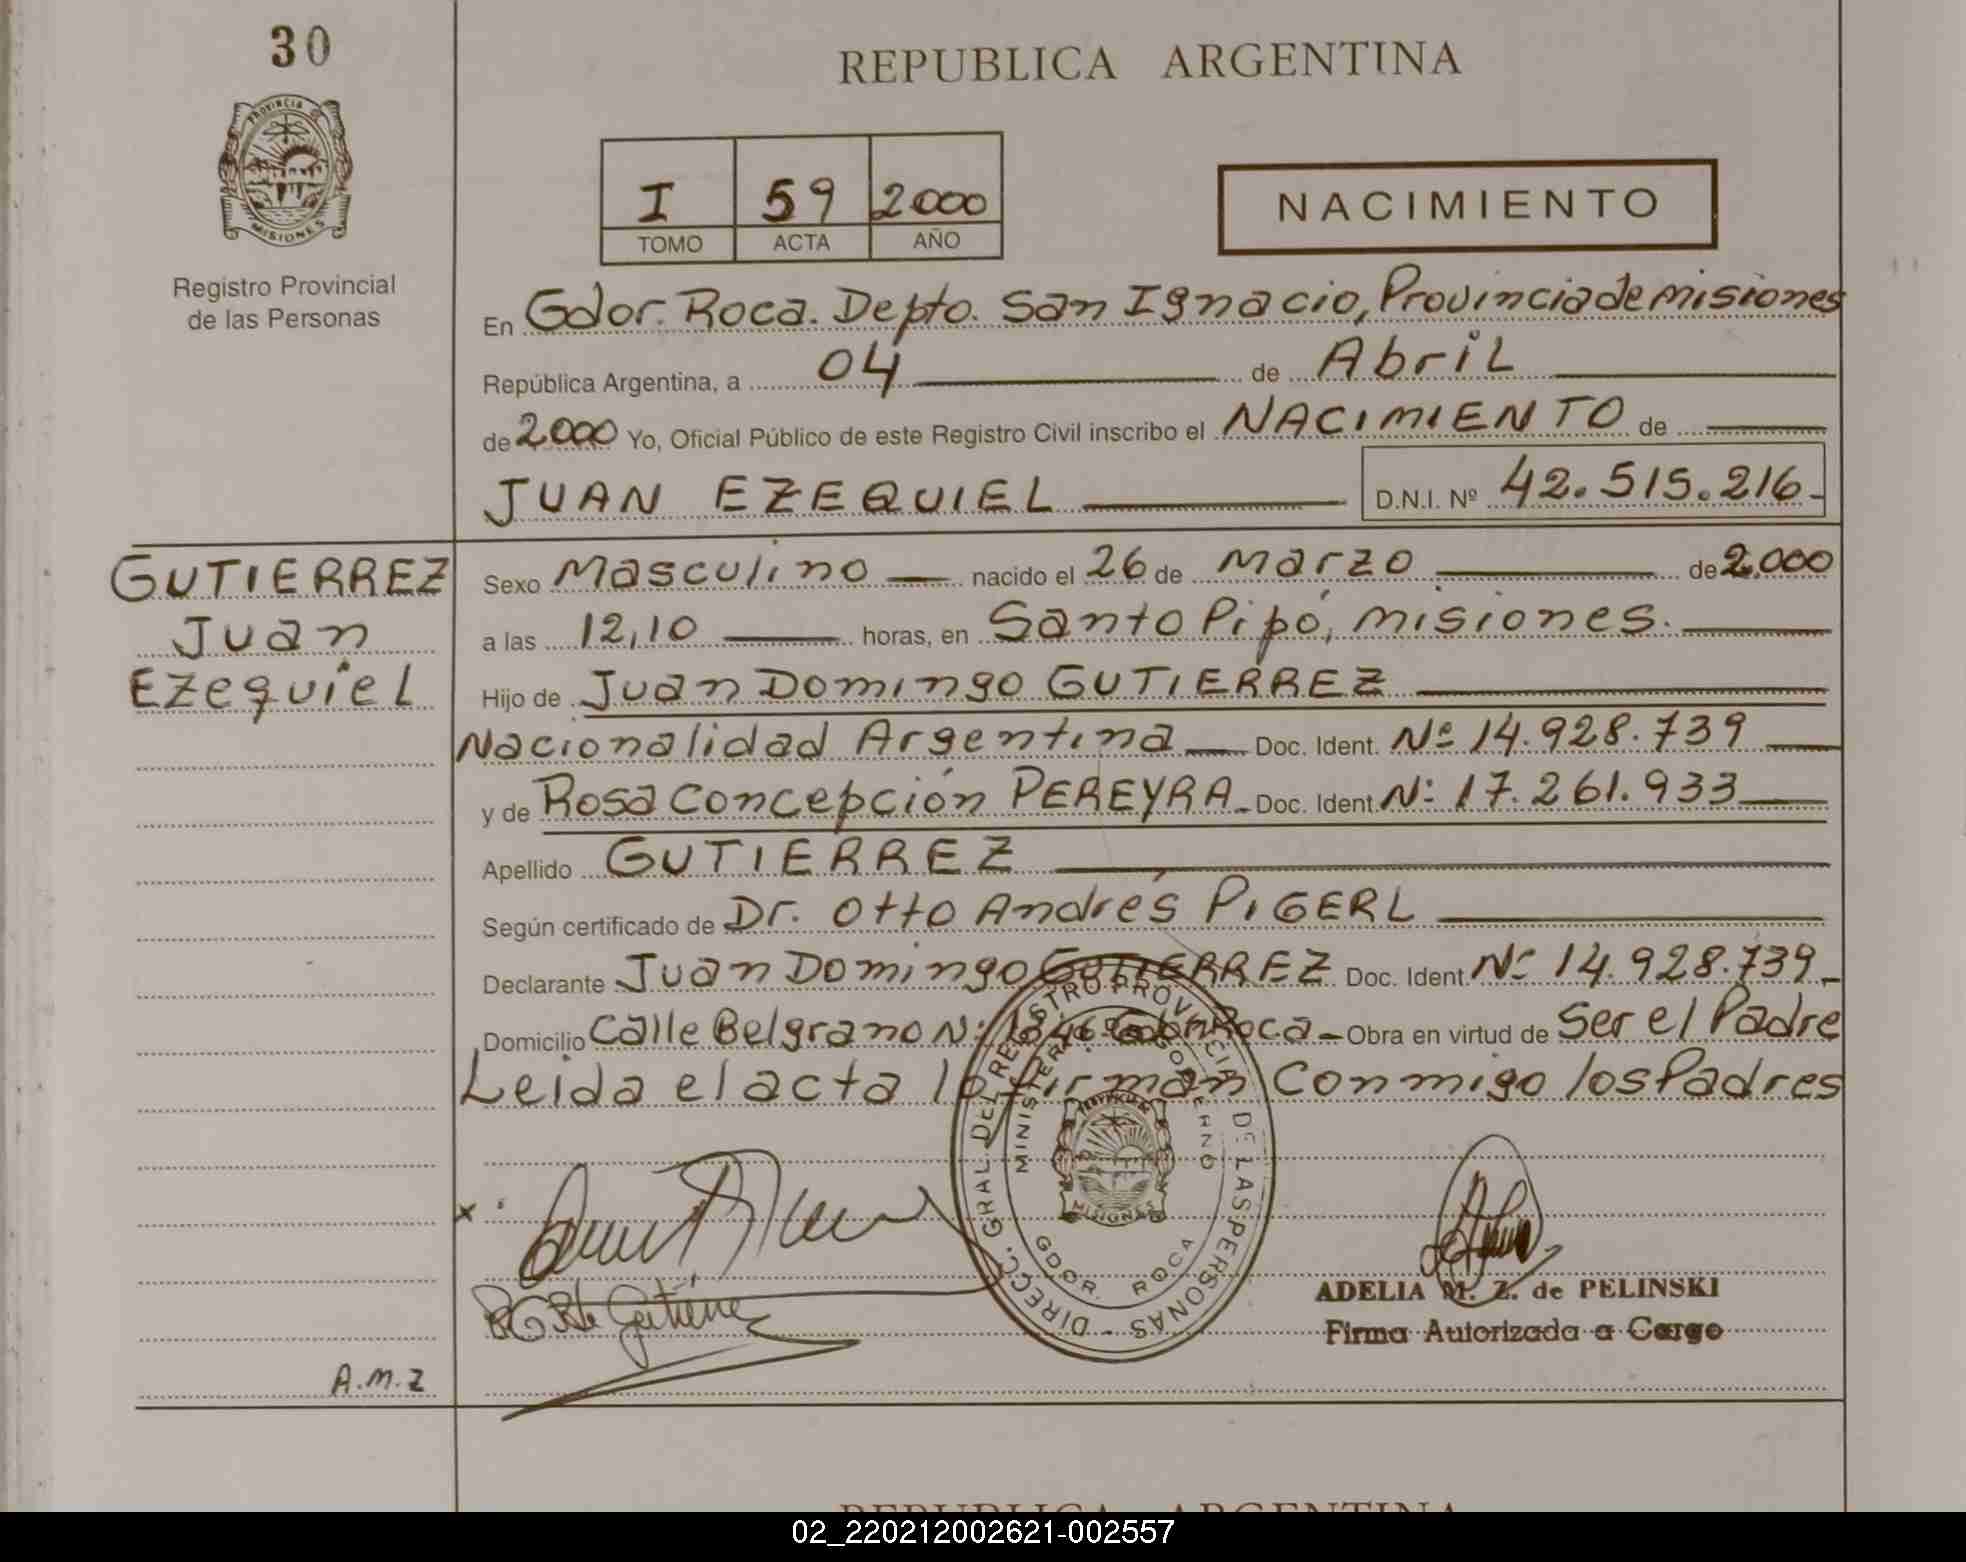 30
REPUBLICA ARGENTINA
PROVINCIA
MISIONES
Registro Provincial
de las Personas
I 59 2000
TOMO ACTA AÑO
NACIMIENTO
En Gdor. Roca. Depto. San Ignacio, Provincia de Misiones
República Argentina, a 04 de Abril
de 2000 Yo, Oficial Público de este Registro Civil inscribo el NACIMIENTO de
JUAN EZEQUIEL D.N.I. Nº 42.515.216-
GUTIERREZ
Juan
Ezequiel
Sexo Masculino nacido el 26 de Marzo de 2.000
a las 12,10 horas, en Santo Pipó, Misiones.
Hijo de Juan Domingo GUTIERREZ
Nacionalidad Argentina Doc. Ident. Nº 14.928.739
y de Rosa Concepción PEREYRA Doc. Ident. Nº 17.261.933
Apellido GUTIERREZ
Según certificado de Dr. Otto Andrés PIGERL
Declarante Juan Domingo GUTIERREZ Doc. Ident. Nº 14.928.739-
Domicilio Calle Belgrano Nº Roca - Obra en virtud de Ser el Padre
Leida el acta lo firman Conmigo los Padres
DIRECC. GRAL DEL REGISTRO PROVINCIAL DE LAS PERSONAS -
MINISTERIO GOBIERNO
MISIONES
GDOR. ROCA
x
Gutiérrez
ADELIA M. Z. de PELINSKI
Firma Autorizada a Cargo
A.M.Z
REPUBLICA ARGENTINA
02_220212002621-002557